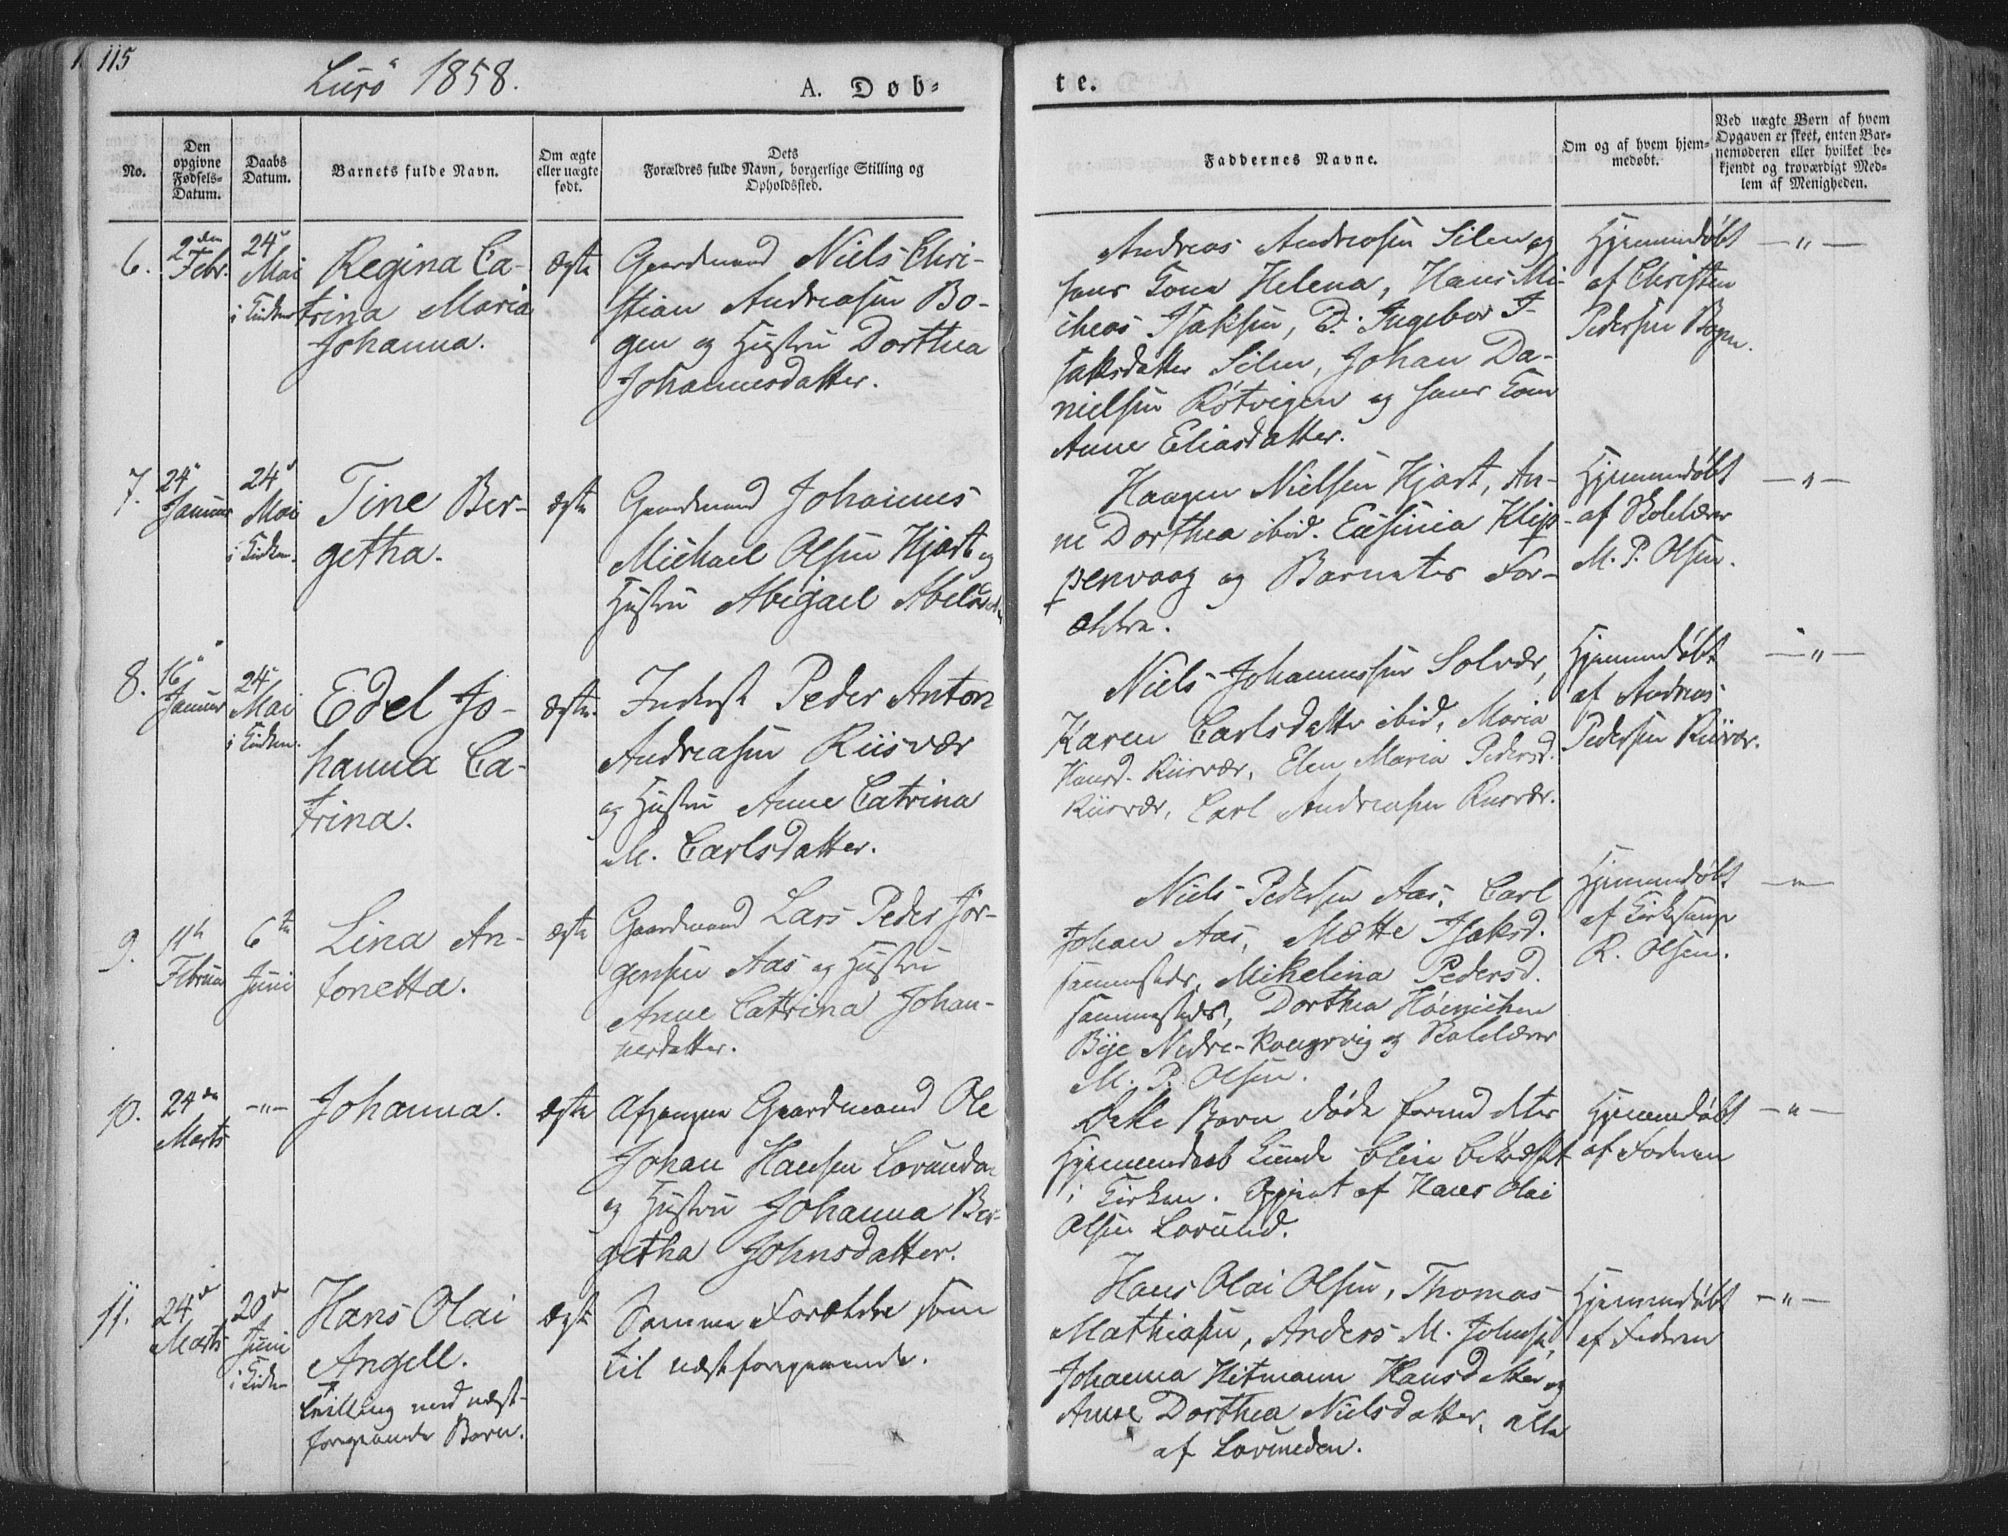 115
Lurö 1858.
A. Døb=
te.
No.
Den
opgivne
Fødsels=
Datum.
Daabs
Datum.
Barnets fulde Navn.
Om ægte
eller uægte
født.
Dets
Forældres fulde Navn, borgerlige Stilling og
Opholdssted.
Faddernes Navne.
Om og af hvem hjem=
medøbt.
Ved uægte Børn af hvem
Opgaven er skeet, enten Bar=
nemoderen eller hvilket be=
kjendt og troværdigt Med=
lem af Menigheden.
6.
2den
Febr.
24
Mai
i Kirken
Regina Ca-
trina Maria
Johanna.
ægte
Gaardmand Niels Chri-
stian Andreasen Bo-
gen og Hustru Dorthea
Johannesdatter.
Andreas Andreasen Silen og
hans Kone Helena, Hans Mi-
cheas Isaksen, P. Ingebor I-
saksdatter Silen, Johan Da-
nielsen Røtvigen og hans Kone
Anne Eliasdatter.
Hjemmedøbt
af Christen
Pedersen Bogen.
— " —
7.
24
Januar
24
Mai
i Kirken.
Tine Ber-
getha.
ægte
Gaardmand Johannes
Michael Olsen Hjart og
Hustru Abigael Abelsd.
Haagen Nielsen Hjart, An-
ne Dorthea ibid. Eusinia Klip-
penvaag og Barnets For-
ældre.
Hjemmedøbt
af Skolelærer
M. P. Olsen.
— " —
8.
16
Januar
24
Mai
i Kirken.
Edel Jo-
hanna Ca-
trina.
ægte.
Inderst Peder Anton
Andreasen Riisvær
og Hustru Anne Catrina
M. Carlsdatter.
Niels Johannessen Solvær,
Karen Carlsdatter ibid, Maria
Hansd. Riisvær, Elen Maria Pedersd.
Riisvær, Carl Andreasen Riisvær.
Hjemmedøbt
af Andreas
Pedersen Riisvær.
— " —
9.
11te
Februar
6te
Juni
Lina An-
tonetta.
ægte
Gaardmand Lars Peder Jör-
gensen Aas og Hustru
Anne Cattrina Johan-
nesdatter.
Niels Pedersen Aas, Carl
Johan Aas, Mætte Isaksd.
sammesteds, Mikelina Pedersd.
sammesteds, Dorthea Høinichen
Bye Nedre-Kongsvig og Skolelærer
M. P. Olsen.
Hjemmedøbt
af Kirkesanger
R. Olsen.
— " —
10.
24de
Marts
— " —
Johanna.
ægte
Afgangen Gaardmand Ole
Johan Hansen Lorunden
og Hustru Johanna Ber-
getha Johnsdatter.
Dette Barn døde forend dets
Hjemmedaab kunde blive bekræftet
i Kirken. Opgivet af Hans Olai
Olsen Lorund.
Hjemmedøbt
af Faderen
— " —
11.
24de
Marts
20de
Juni
i Kirken
Hans Olai
Angell.
Tvilling med næst-
foregaaende Barn.
ægte
Samme Forældre som
til næstforegaaende.
Hans Olai Olsen, Thomas
Mathiasen, Anders M. Johnsen,
Johanna Hitmann Hansdatter og
Anne Dorthea Nielsdatter, alle
af Lorunden.
Hjemmedøbt
af Faderen
— " —